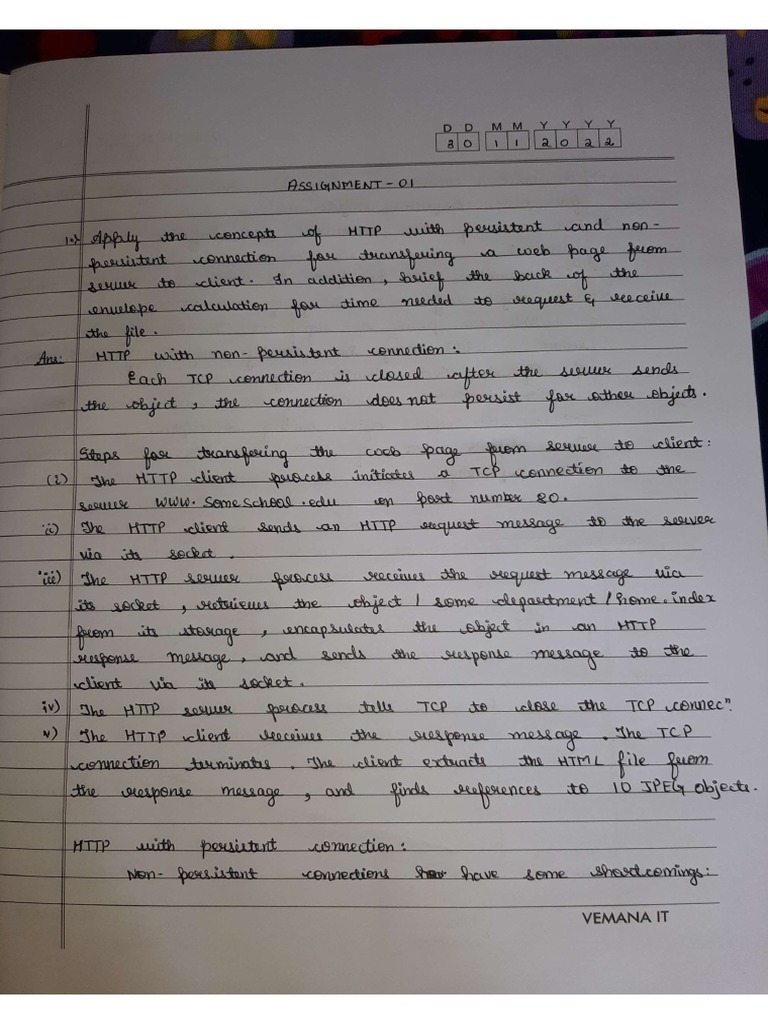 D D M M Y Y Y Y
30 11 2022
ASSIGNMENT-01
1.) Apply the concepts of HTTP with persistent and non-
persistent connection for transfering a web page from
server to client. In addition, brief the back of the
envelope calculation for time needed to request & receive
the file.
Ans: HTTP with non-persistent connection:
Each TCP connection is closed after the server sends
the object, the connection does not persist for other objects.
Steps for transfering the web page from server to client:
(i) The HTTP client process initiates a TCP connection to the
server www.someschool.edu on port number 80.
ii) The HTTP client sends an HTTP request message to the server
via its socket.
iii) The HTTP server process receives the request message via
its socket, retrieves the object / some department / home.index
from its storage, encapsulates the object in an HTTP
response message, and sends the response message to the
client via its socket.
iv) The HTTP server process tells TCP to close the TCP connecⁿ.
v) The HTTP client receives the response message. The TCP
connection terminates. The client extracts the HTML file from
the response message, and finds references to 10 JPEG objects.
HTTP with persistent connection:
Non-persistent connections have some shortcomings:
VEMANA IT